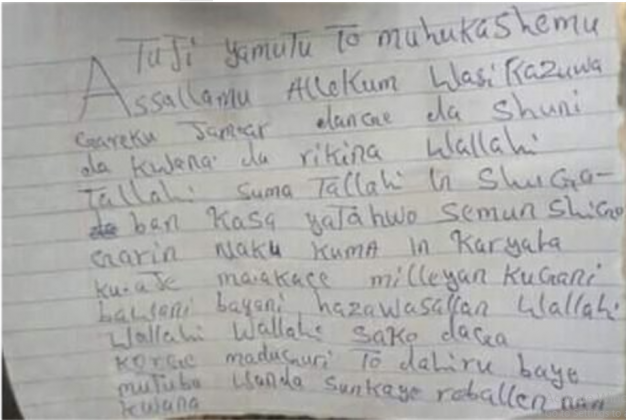 TuJi yamutu To muhukaShemu
Assallamu Allekum Wasikazuwa
Gareku Jamaar dancue da Shuni
da Kwana da rikina Wallahi
Tallahi Suma Tallahi In ShuGa-
ban Kasa yaTahwo Semun ShiGo
Garin Naku Kuma In Karyata
Ku.aJe ma.aKace milleyan KuGani
bayani hazawasallan Wallahi
Wallahi Wallahi Sako daga
maduGuri To dahiru baye
mutuba Wanda Sunkaye roballen nan
Kwana